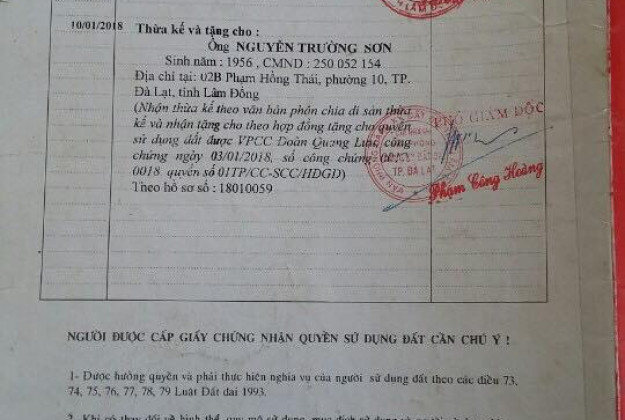 10/01/2018 Thừa kế và tặng cho :
Ông NGUYỄN TRƯỜNG SƠN
Sinh năm : 1956 , CMND : 250 052 154
Địa chỉ tại: 02B Phạm Hồng Thái, phường 10, TP.
Đà Lạt, tỉnh Lâm Đồng
(Nhận thừa kế theo văn bản phân chia di sản thừa
kế và nhận tặng cho theo hợp đồng tặng cho quyền
PHÓ GIÁM ĐỐC
sử dụng đất được VPCC Đoàn Quang Lưu, công
chứng ngày 03/01/2018, số công chứng
0018 quyển số 01TP/CC-SCC/HDGD)
TP. ĐÀ LẠT
Phạm Công Hoàng
Theo hồ sơ số : 18010059
NGƯỜI ĐƯỢC CẤP GIẤY CHỨNG NHẬN QUYỀN SỬ DỤNG ĐẤT CẦN CHÚ Ý !
1- Được hưởng quyền và phải thực hiện nghĩa vụ của người sử dụng đất theo các điều 73,
74, 75, 76, 77, 78, 79 Luật Đất đai 1993.
2- Khi có thay đổi về hình thể, quy mô sử dụng, mục đích sử dụng